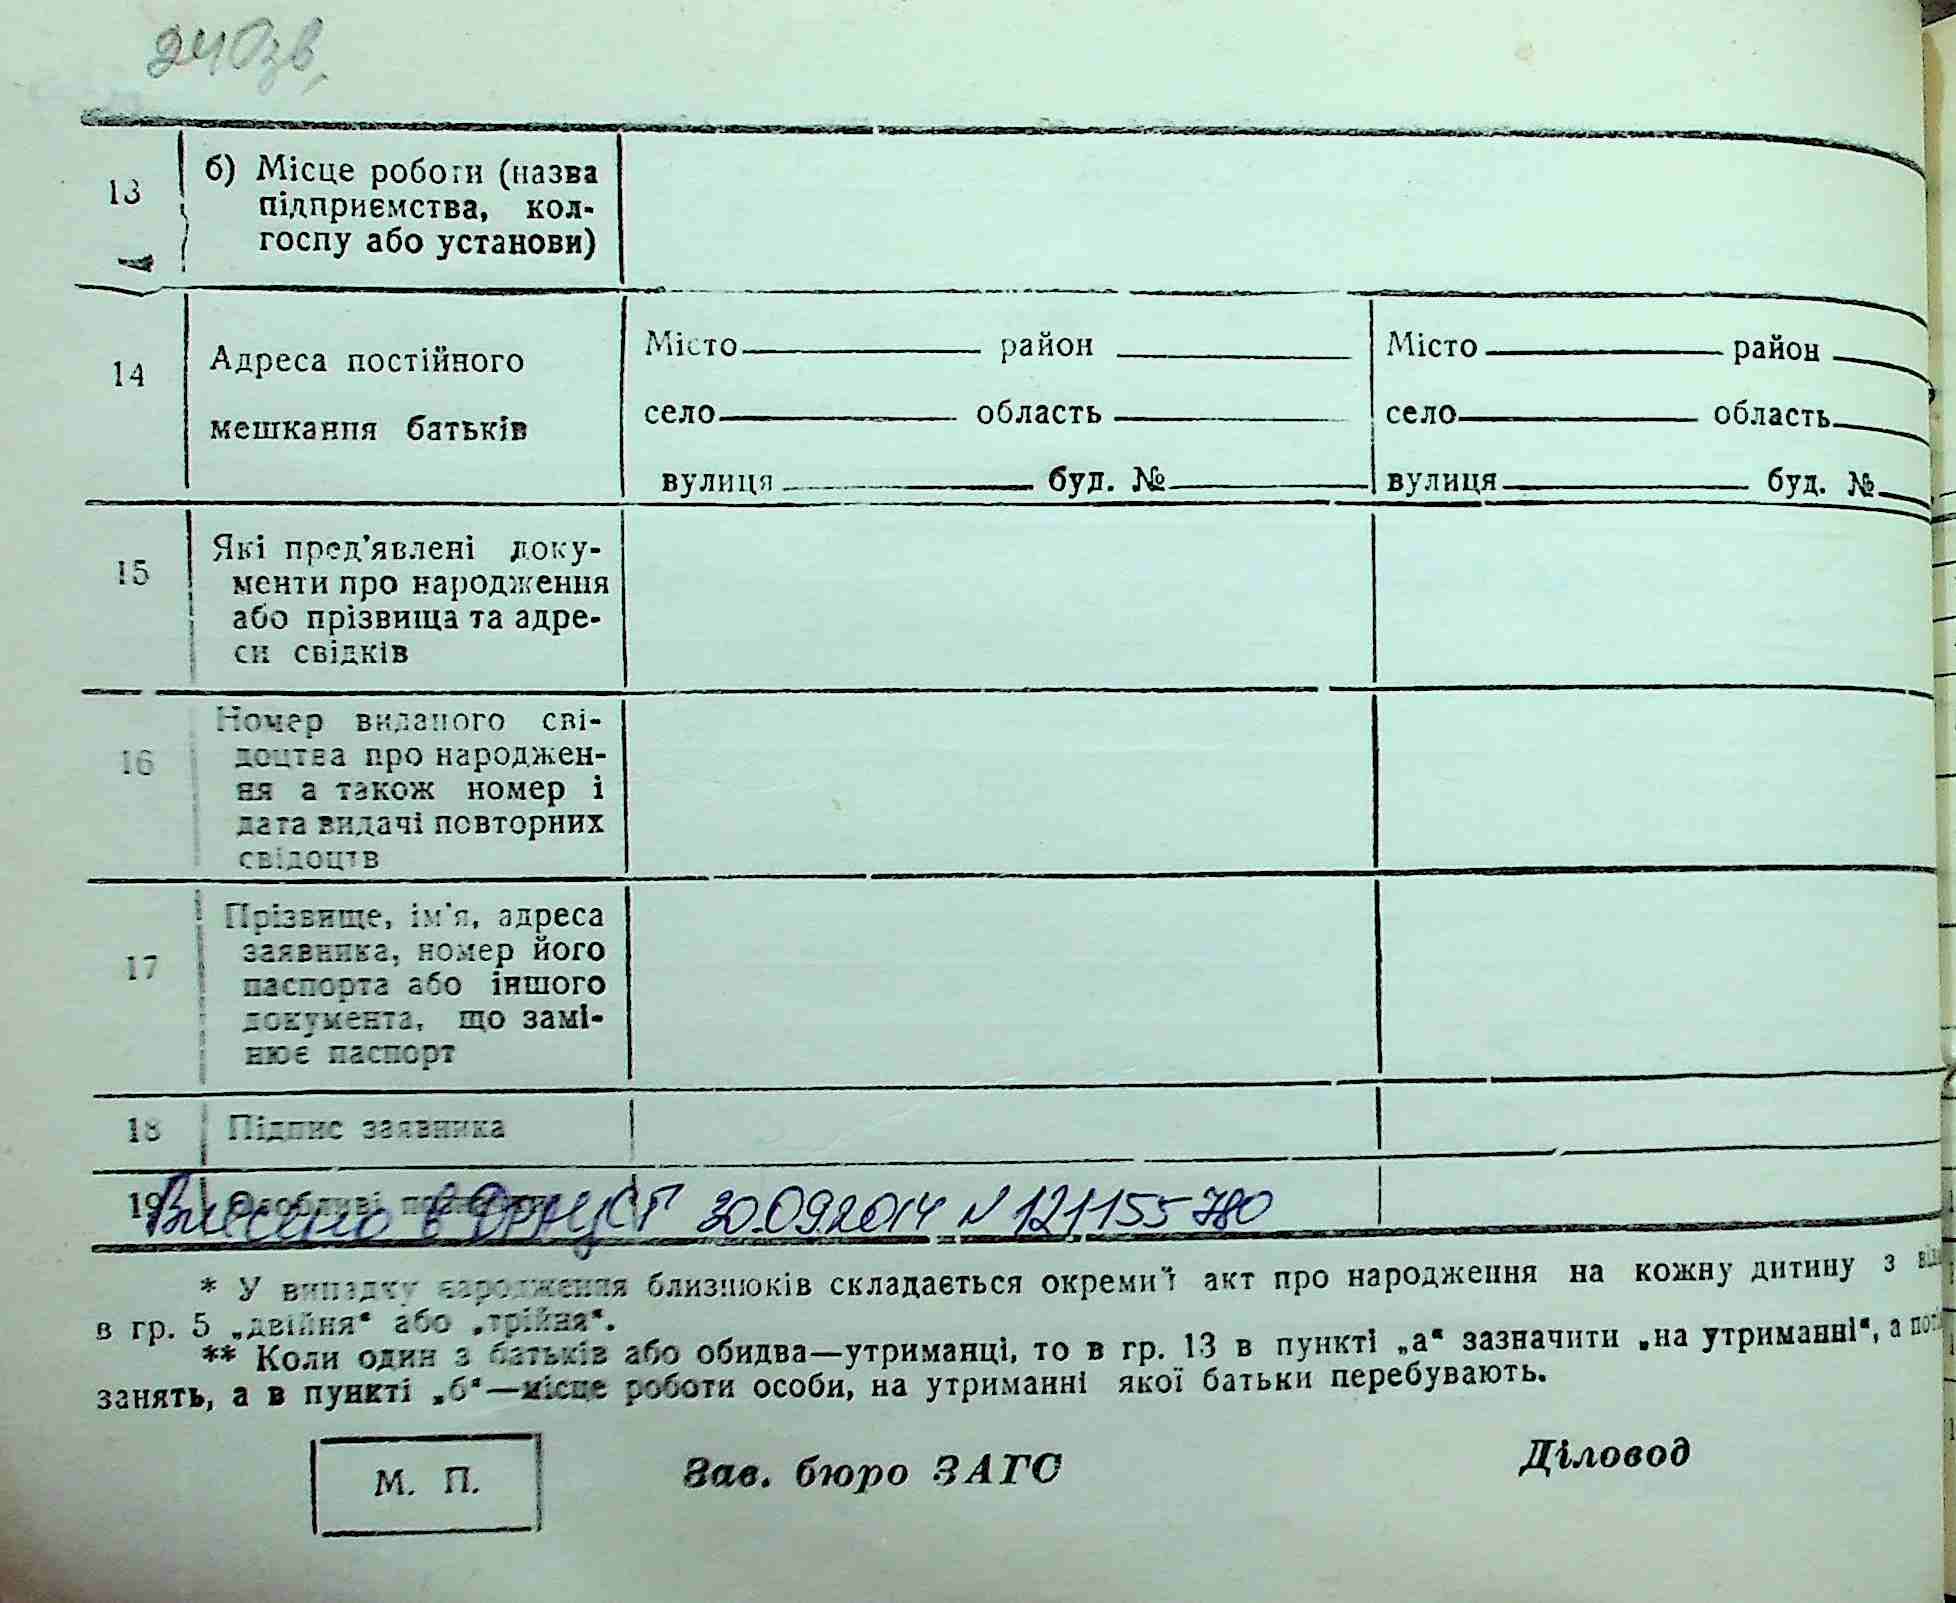 240зв,
13 б) Місце роботи (назва
підприємства, кол-
госпу або установи)
14 Адреса постійного
мешкання батьків
Місто район
село область
вулиця буд. №
Місто район
село область
вулиця буд. №
15 Які пред’явлені доку-
менти про народження
або прізвища та адре-
си свідків
16 Номер виданого сві-
доцтва про народжен-
ня а також номер і
дата видачі повторних
свідоцтв
17 Прізвище, ім’я, адреса
заявника, номер його
паспорта або іншого
документа, що замі-
нює паспорт
18 Підпис заявника
19 Особливі
Внесено в ДРАЦСГ 30.09.2014 N 121155780
* У випадку народження близнюків складається окремий акт про народження на кожну дитину з
в гр. 5 „двійня“ або „трійня“.
** Коли один з батьків або обидва—утриманці, то в гр. 13 в пункті „а“ зазначити „на утриманні“, а
занять, а в пункті „б“—місце роботи особи, на утриманні якої батьки перебувають.
М. П.
Зав. бюро ЗАГС
Діловод